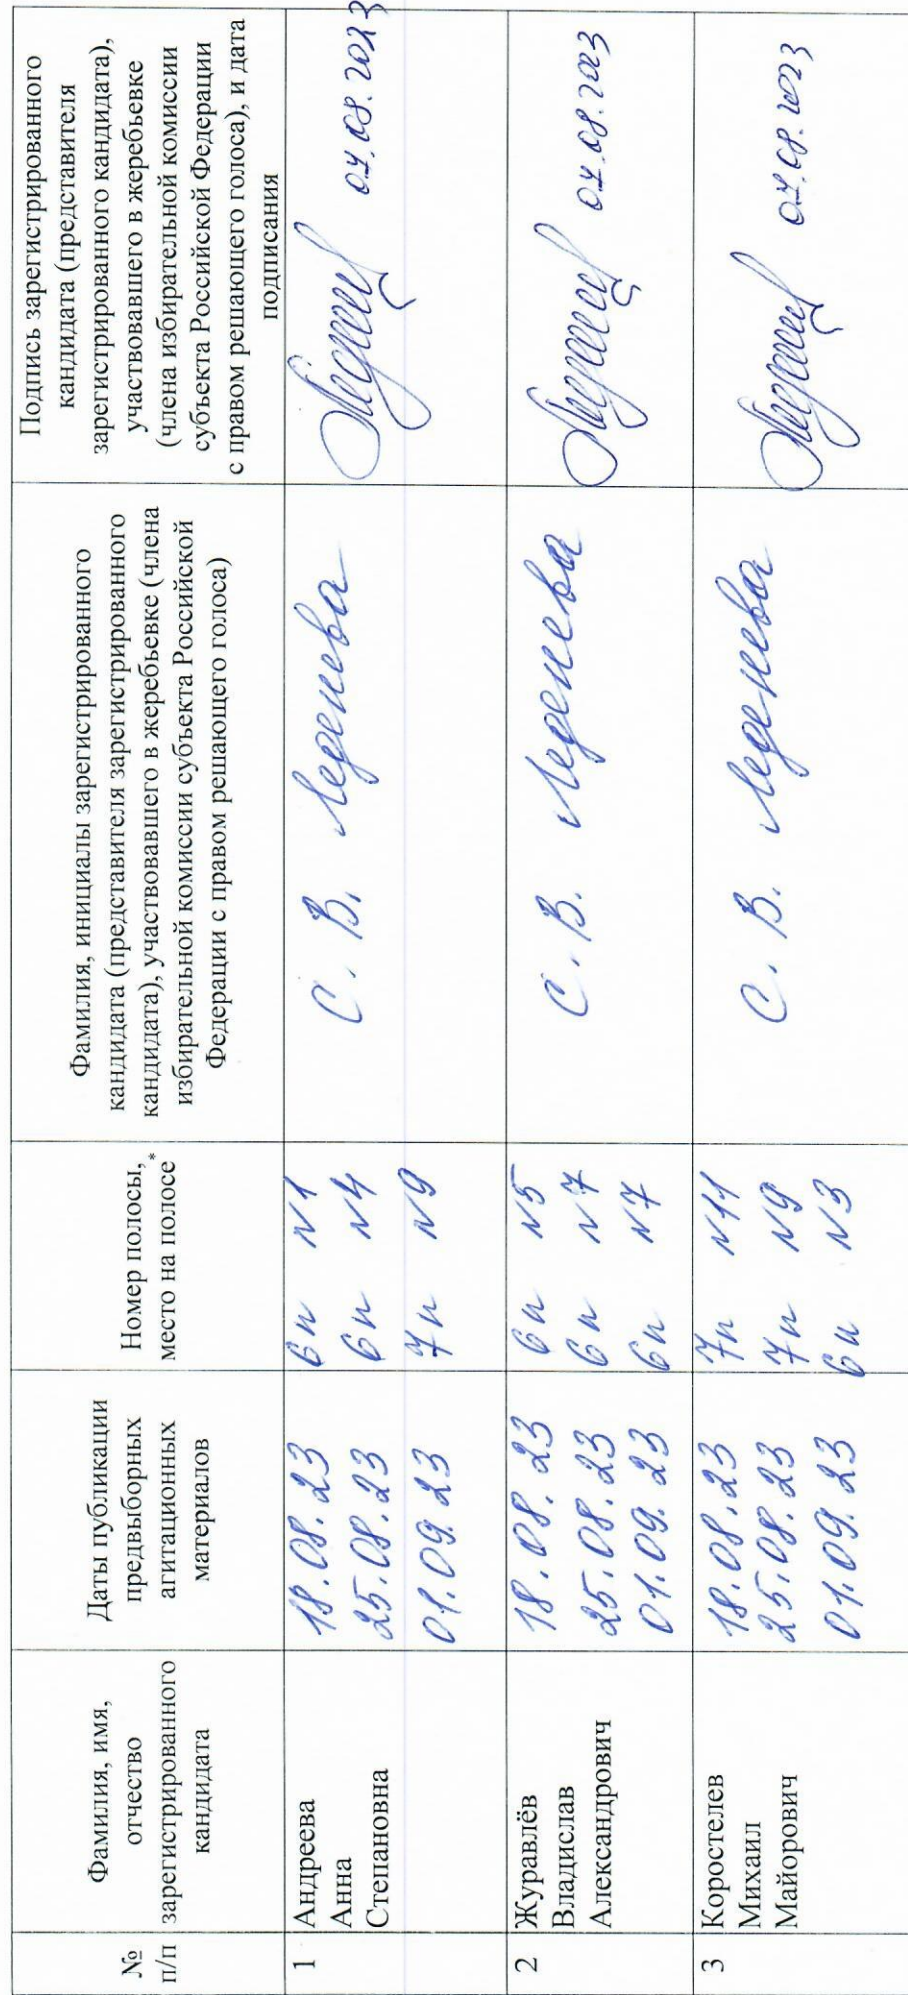 №
п/п
Фамилия, имя,
отчество
зарегистрированного
кандидата
Даты публикации
предвыборных
агитационных
материалов
Номер полосы,
место на полосе*
Фамилия, инициалы зарегистрированного
кандидата (представителя зарегистрированного
кандидата), участвовавшего в жеребьевке (члена
избирательной комиссии субъекта Российской
Федерации с правом решающего голоса)
Подпись зарегистрированного
кандидата (представителя
зарегистрированного кандидата),
участвовавшего в жеребьевке
(члена избирательной комиссии
субъекта Российской Федерации
с правом решающего голоса), и дата
подписания
1
Андреева
Анна
Степановна
18.08.23 6п №1
25.08.23 6п №4
01.09.23 7п №9
С. В. Леденева
07.08.2023
2
Журавлёв
Владислав
Александрович
18.08.23 6п №5
25.08.23 6п №7
01.09.23 6п №7
С. В. Леденева
07.08.2023
3
Коростелев
Михаил
Майорович
18.08.23 7п №11
25.08.23 7п №9
01.09.23 6п №3
С. В. Леденева
07.08.2023